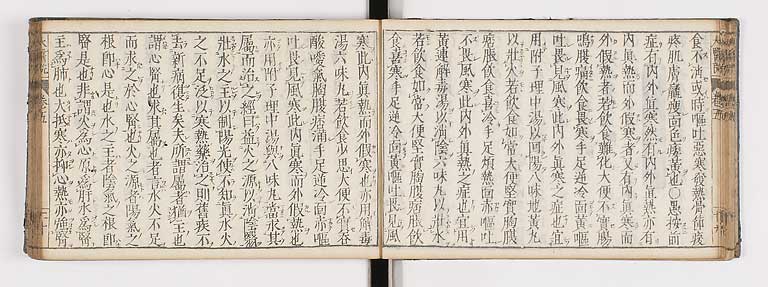 食不消或時嘔吐惡寒發熱骨節痠
疼肌膚羸瘦面色痿黃也○愚按前
症有内外眞寒然有内外眞熱亦有
内眞熱而外假寒者又有内眞寒而
外假熱者若飲食難化大便不實腸
鳴腹痛飲食畏寒手足逆冷面黃嘔
吐畏見風寒此内外眞寒之症也宜
用附子理中湯以回陽八味地黃丸
以壯火若飲食如常大便堅實胸腹
痞脹飲食喜冷手足煩熱面赤嘔吐
不畏風寒此内外眞熱之症也宜用
黃連解毒湯以消陰六味丸以壯水
若飲食如常大便堅實胸腹脹痛飲
食喜寒手足逆冷面黃嘔吐畏見風
寒此内眞熱而外假寒也亦用解毒
湯六味丸若飲食少思大便不實吞
酸噯氣胸腹痞滿手足逆冷面赤嘔
吐畏見風寒此内眞寒而外假熱也
亦用附子理中湯與八味丸當求其
屬而治之經曰益火之源以消陰翳
壯水之主以制陽光使不知眞水火
之不足泛以寒熱藥治之則舊疾不
去新病復生矣夫所謂屬者猶主也
謂心腎也求其屬也者言水火不足
而求之於心腎也火之源者陽氣之
根即心是也水之主者陰氣之根即
腎是也非謂火爲心源爲肝水爲腎
主爲肺也大抵寒亦抑心熱亦強腎